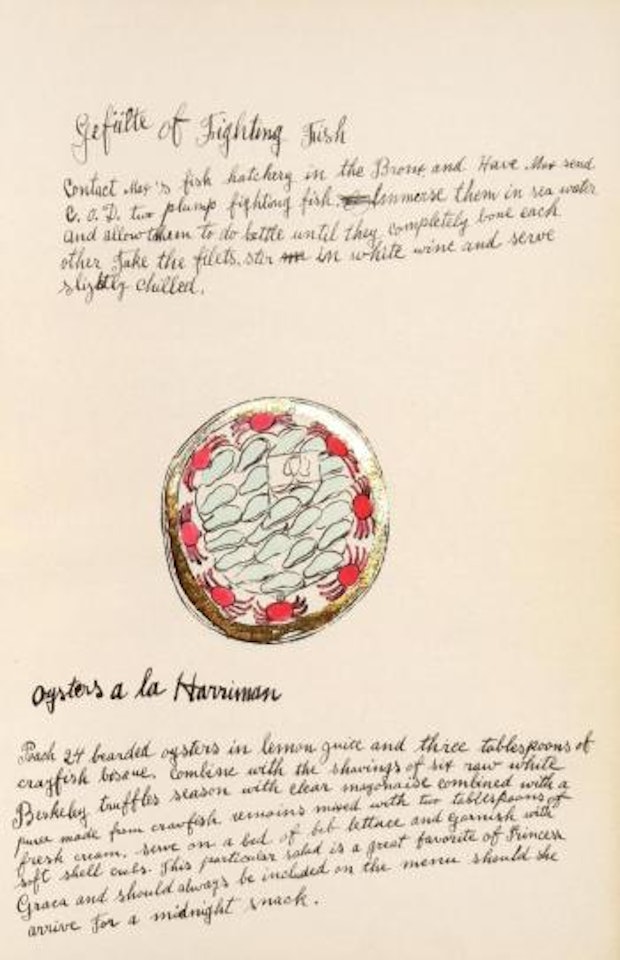 Gefülte of Fighting Fish
Contact Max's fish hatchery in the Bronx and Have Max send
C.O.D. two plump fighting fish. Immerse them in sea water
and allow them to do battle until they completely bone each
other Take the filets, stir in white wine and serve
slightly chilled.
Oysters a la Harriman
Poach 24 bearded oysters in lemon juice and three tablespoons of
crayfish bisque. Combine with the shavings of six raw white
Berkeley truffles season with clear mayonaise combined with a
puree made from crawfish remains mixed with two tablespoons of
fresh cream, serve on a bed of bib lettace and garnish with
soft shell owls. This particular salad is a great favorite of Princess
Graca and should always be included on the menu should she
arrive for a midnight snack.